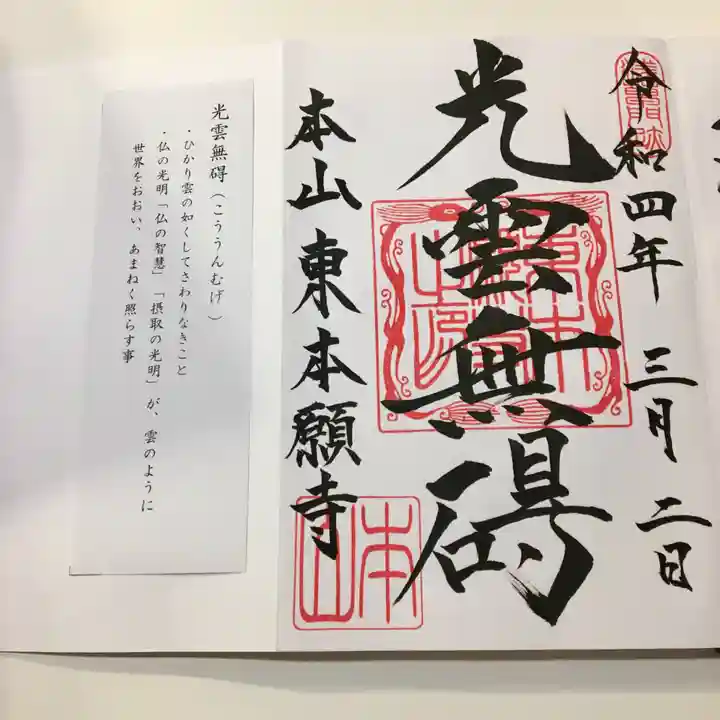 令和四年 三月 二日
光雲無碍
本山東本願寺
本山
光雲無碍(こううんむげ)
・ひかり雲の如くしてさわりなきこと
・仏の光明「仏の智慧」「摂取の光明」が、雲のように
世界をおおい、あまねく照らす事